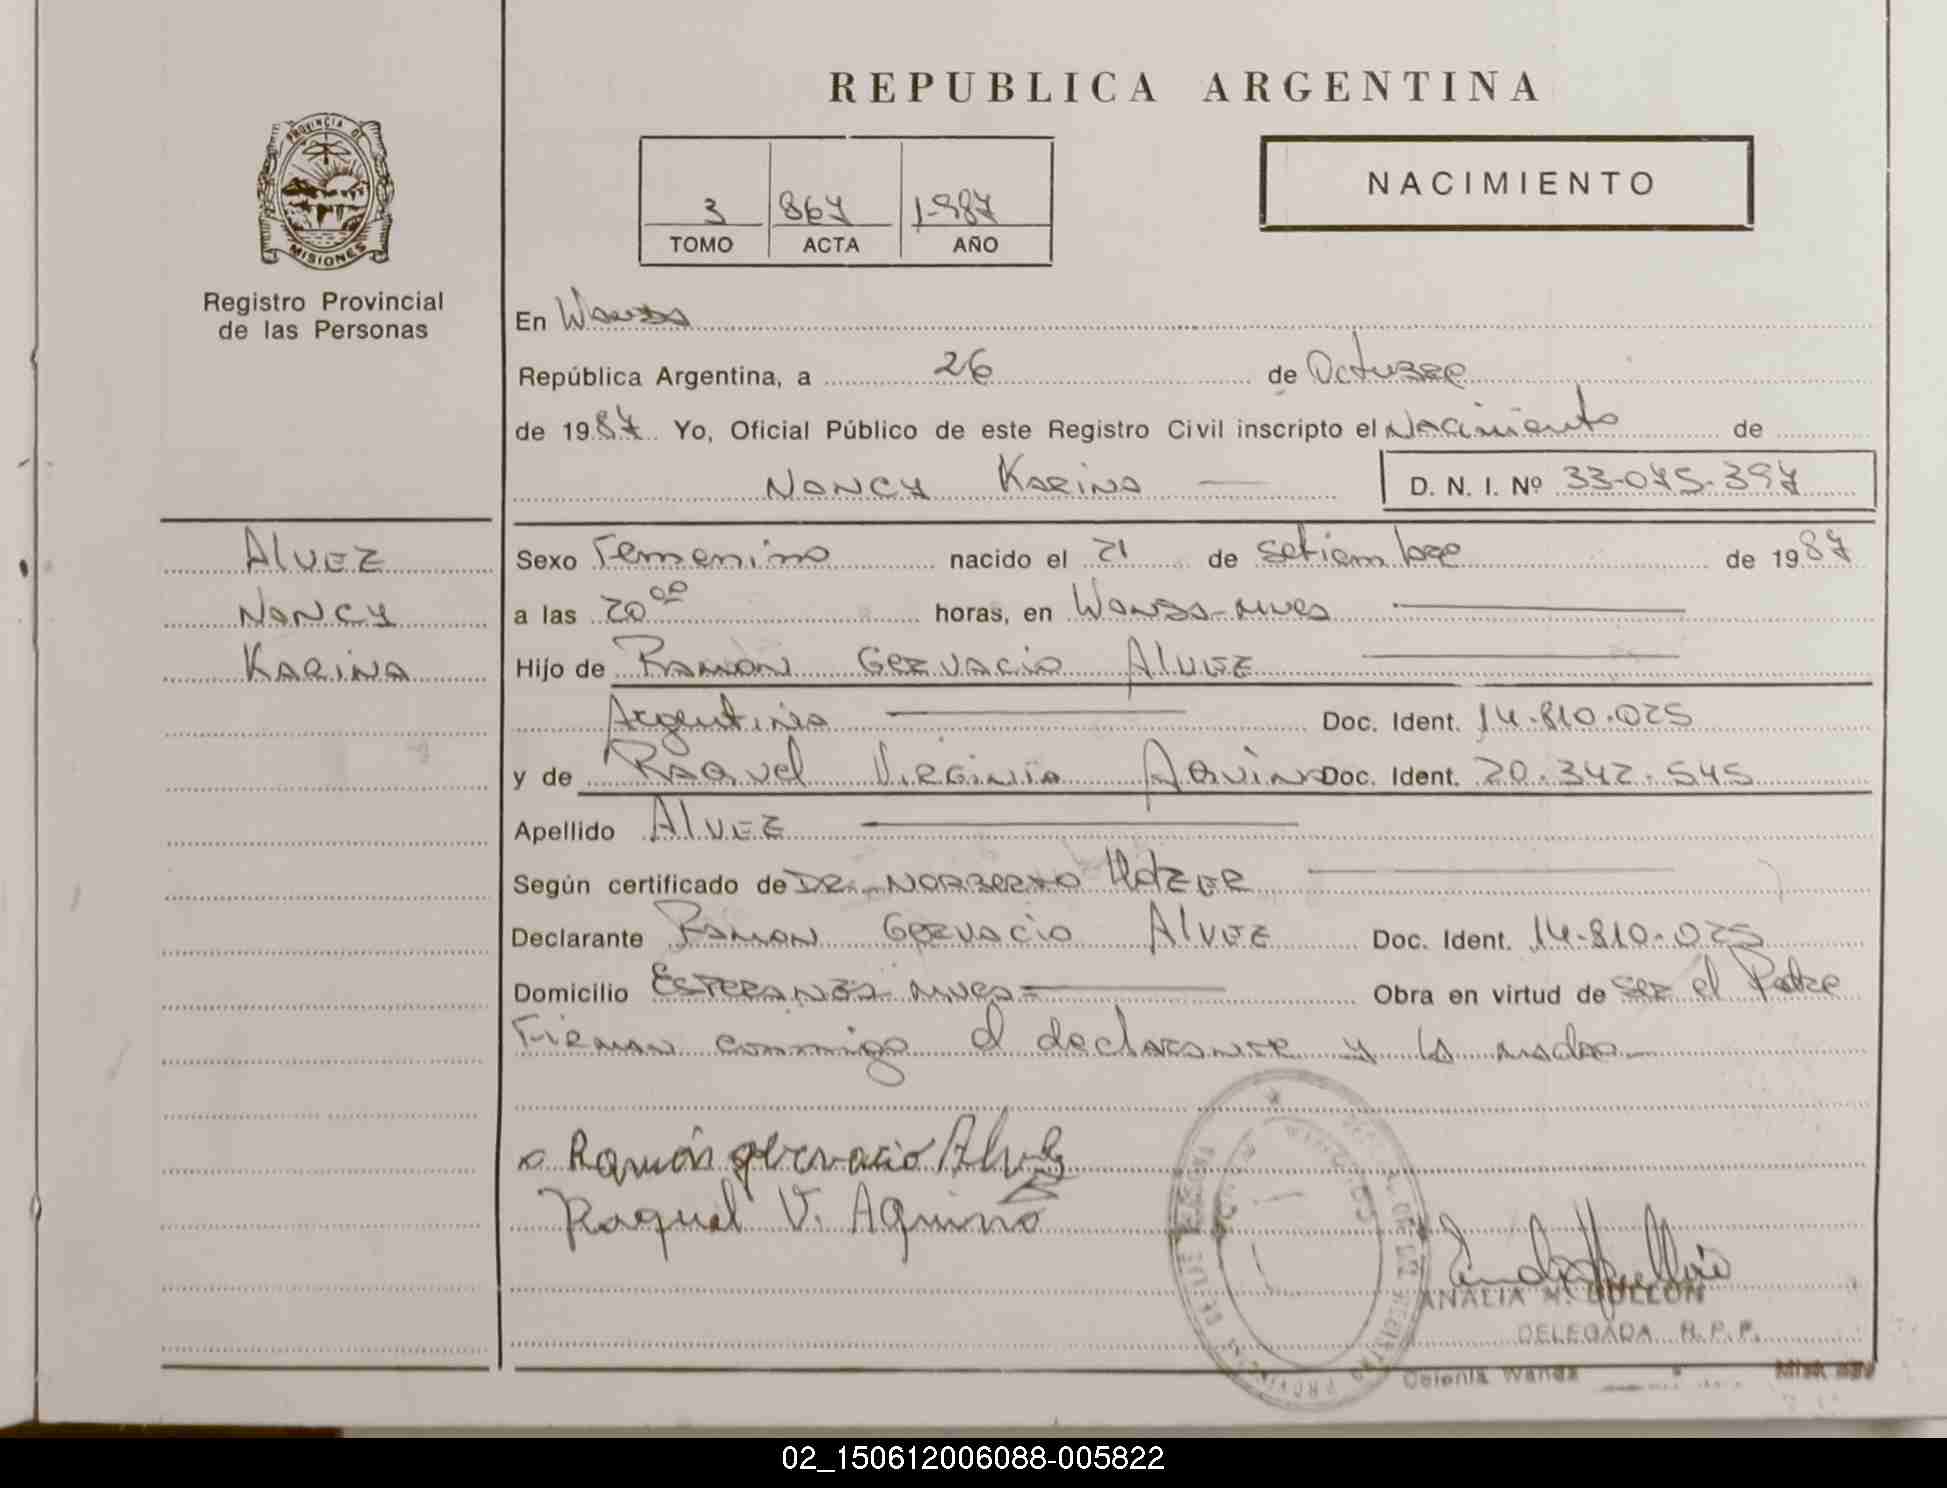 REPUBLICA ARGENTINA
PROVINCIA DE
MISIONES
Registro Provincial
de las Personas
3 867 1.987
TOMO ACTA AÑO
NACIMIENTO
En Wanda
República Argentina, a 26 de Octubre
de 1987 Yo, Oficial Público de este Registro Civil inscripto el Nacimiento de
Nancy Karina D. N. I. Nº 33.075.397
Alvez
Nancy
Karina
Sexo Femenino nacido el 21 de Setiembre de 1987
a las 20 00 horas, en Wanda - Mnes
Hijo de Ramon Gervacio Alvez
Argentinos Doc. Ident. 14.810.025
y de Raquel Virginia Aquino Doc. Ident. 20.342.545
Apellido Alvez
Según certificado de DR. Norberto
Declarante Ramon Gervacio Alvez Doc. Ident. 14.810.025
Domicilio Esperanza - Mnes - Obra en virtud de ser el Padre
Firman conmigo el declarante y la madre
x Ramón gervacio Alvez
Raquel V. Aquino
ANALIA M.
DELEGADA R. P. P.
Colonia Wanda
02_150612006088-005822